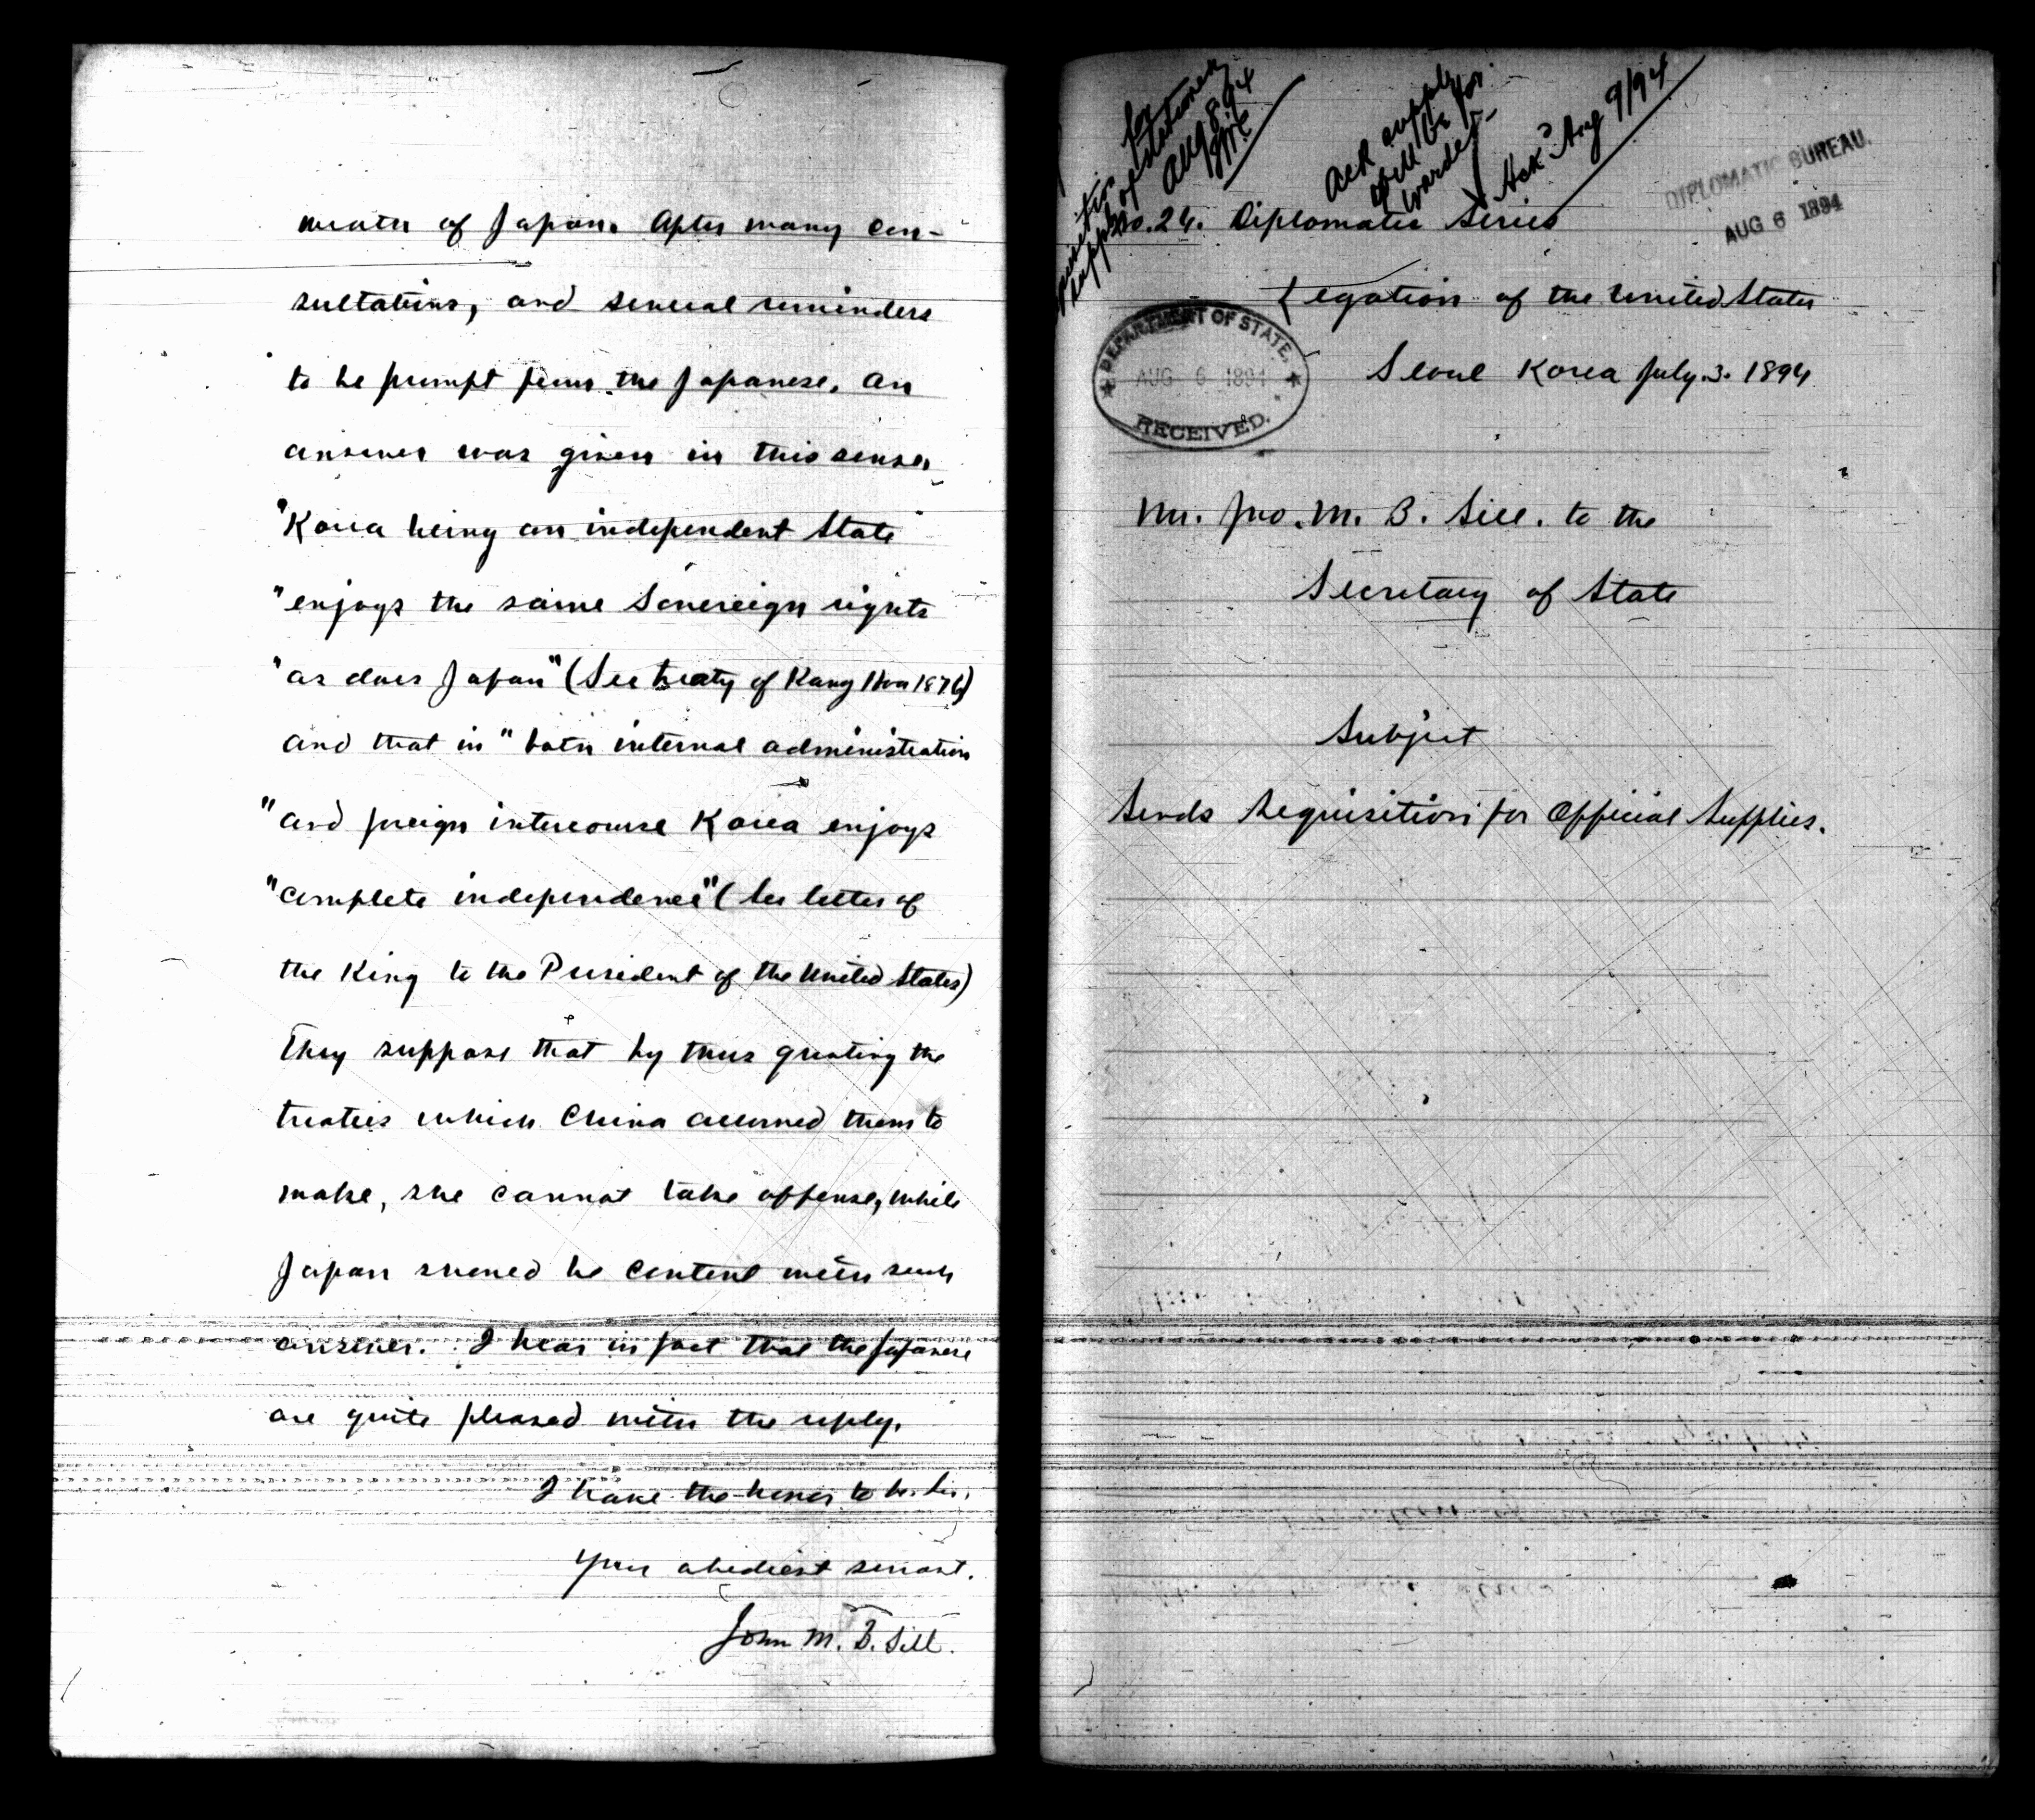 wrath of Japan. After many con-
sultations, and several reminders
to be prompt from the Japanese, an
answer was given in this sense,
"Korea being an independent State
"enjoys the same Sovereign rights
"as does Japan" (See treaty of Kang Hoa 1876)
and that in "both internal administration
"and foreign intercourse Korea enjoys
"complete independence" (See letter of
the King to the President of the United States)
They suppose that by thus quoting the
treaties which China allowed them to
make, she cannot take offense, while
Japan should be content with such
answer. I hear in fact that the Japanese
are quite pleased with the reply.
I have the honor to be. Sir,
Your obedient servant.
John M. B. Sill.
for
supply of stationery
Aug 8. 94
Ack supply
will be for
warded
Ack'd Aug 9/94
DIPLOMATIC BUREAU.
AUG 6 1894
No. 24. Diplomatic Series
Legation of the United States
Seoul Korea July. 3. 1894
DEPARTMENT OF STATE,
AUG 6 1894
RECEIVED.
Mr. Jno. M. B. Sill. to the
Secretary of State
Subject
Sends Requisition for Official Supplies.